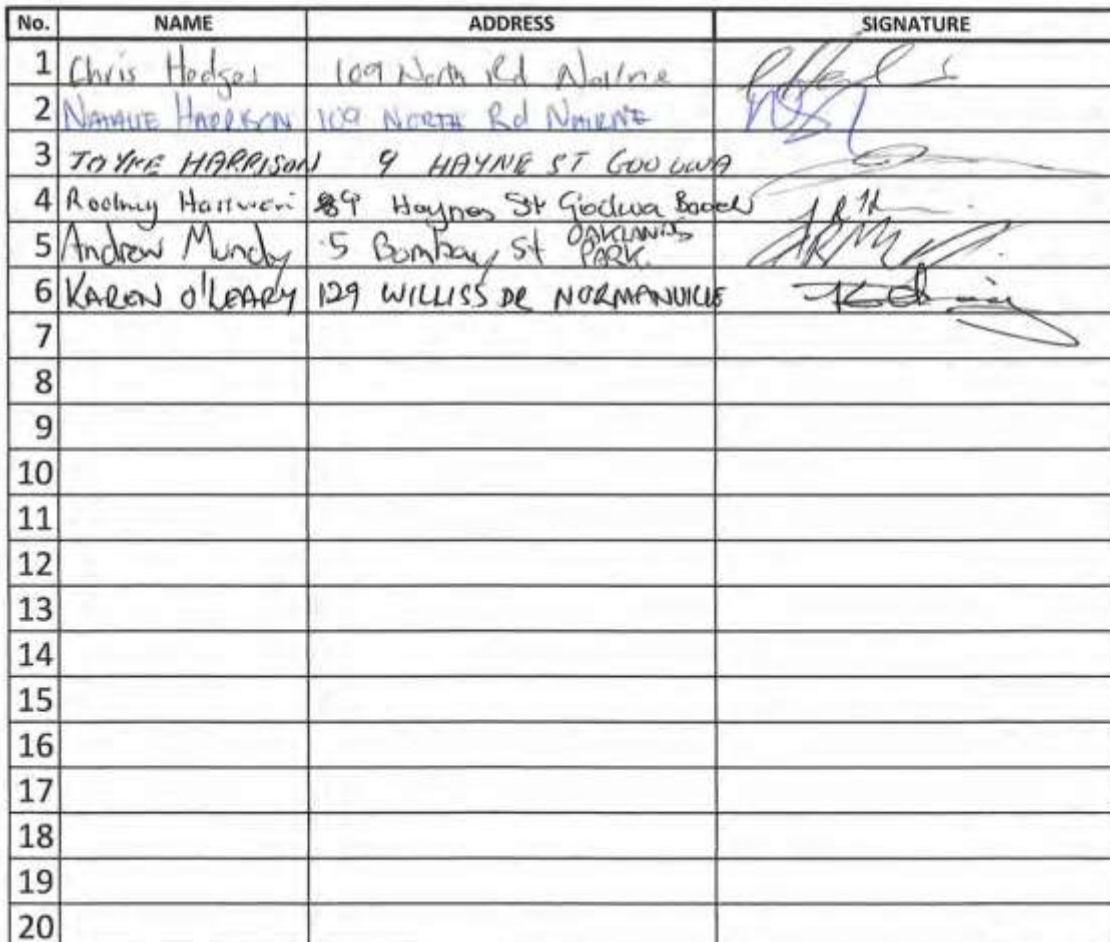 No. NAME ADDRESS SIGNATURE
1 Chris Hodges 109 North Rd Nairne
2 NATALIE HARRISON 109 NORTH Rd NAIRNE
3 HARRISON 9 HAYNE ST GOOLWA
4 Rodney 9 Haynes St Goolwa Beach
5 Andrew Mundy 5 Bombay St OAKLANDS PARK.
6 KAREN O'LEARY 129 WILLISS DR NORMANVILLE
7
8
9
10
11
12
13
14
15
16
17
18
19
20